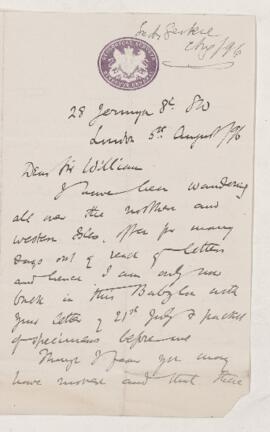 28 Jermyn St SW
London 5th August/96
Dear Sir William
I have been wandering
all over the northern and
western Isles, often for many
days out of reach of letters
and hence I am only now
back in this Babylon with
your letter of 21st July & packet
of specimens before me
Though I fear you may
have moved and that these